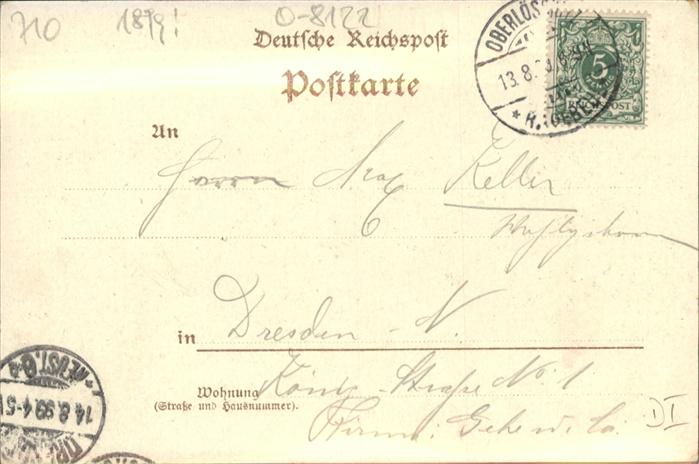 710 1899! 0-8122
Deutsche Reichspost
Postkarte
OBERLÖSSNITZ
13.8.99
* R.:DEBEUL
5
REICHSPOST
An
Herrn Max Keller
in Dresden - N.
Wohnung König-Straße No 1
(Straße und Hausnummer).
Firma: Gehe & Co.
DI
NEUST.
14.8.99.4-5
DRESDEN